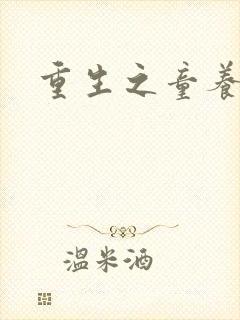 重生之童养
温米酒